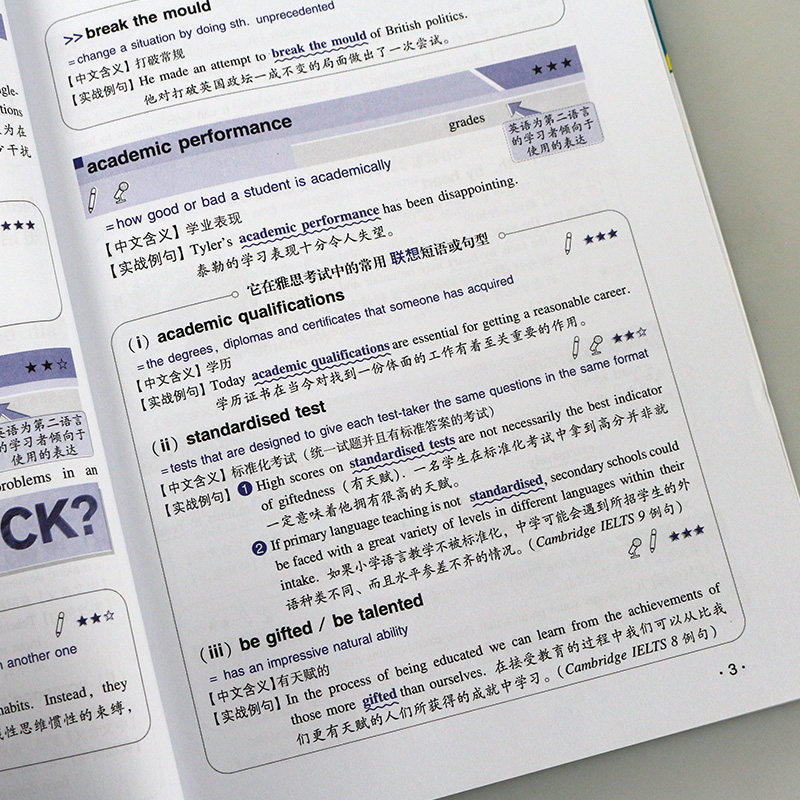 ogle-
tions
人为在
了干扰
★★★
★★☆
英语为第二语言
的学习者倾向于
使用的表达
problems in an
CK?
★★☆
n another one
habits. Instead, they
性思维惯性的束缚,
>> break the mould
=change a situation by doing sth. unprecedented
【中文含义】打破常规
【实战例句】He made an attempt to break the mould of British politics.
他对打破英国政坛一成不变的局面做出了一次尝试。
★★★
■academic performance
grades
英语为第二语言
的学习者倾向于
使用的表达
=how good or bad a student is academically
【中文含义】学业表现
【实战例句】Tyler's academic performance has been disappointing.
泰勒的学习表现十分令人失望。
它在雅思考试中的常用 联想短语或句型
★★★
(i) academic qualifications
=the degrees, diplomas and certificates that someone has acquired
【中文含义】学历
【实战例句】Today academic qualifications are essential for getting a reasonable career.
学历证书在当今对找到一份体面的工作有着至关重要的作用。
★★☆
(ii) standardised test
=tests that are designed to give each test-taker the same questions in the same format
【中文含义】标准化考试(统一试题并且有标准答案的考试)
【实战例句】❶ High scores on standardised tests are not necessarily the best indicator
of giftedness(有天赋). 一名学生在标准化考试中拿到高分并非就
一定意味着他拥有很高的天赋。
❷ If primary language teaching is not standardised, secondary schools could
be faced with a great variety of levels in different languages within their
intake. 如果小学语言教学不被标准化, 中学可能会遇到所招学生的外
语种类不同、而且水平参差不齐的情况。(Cambridge IELTS 9 例句)
★★★
(iii) be gifted / be talented
= has an impressive natural ability
【中文含义】有天赋的
【实战例句】In the process of being educated we can learn from the achievements of
those more gifted than ourselves. 在接受教育的过程中我们可以从比我
们更有天赋的人们所获得的成就中学习。(Cambridge IELTS 8 例句)
·3·